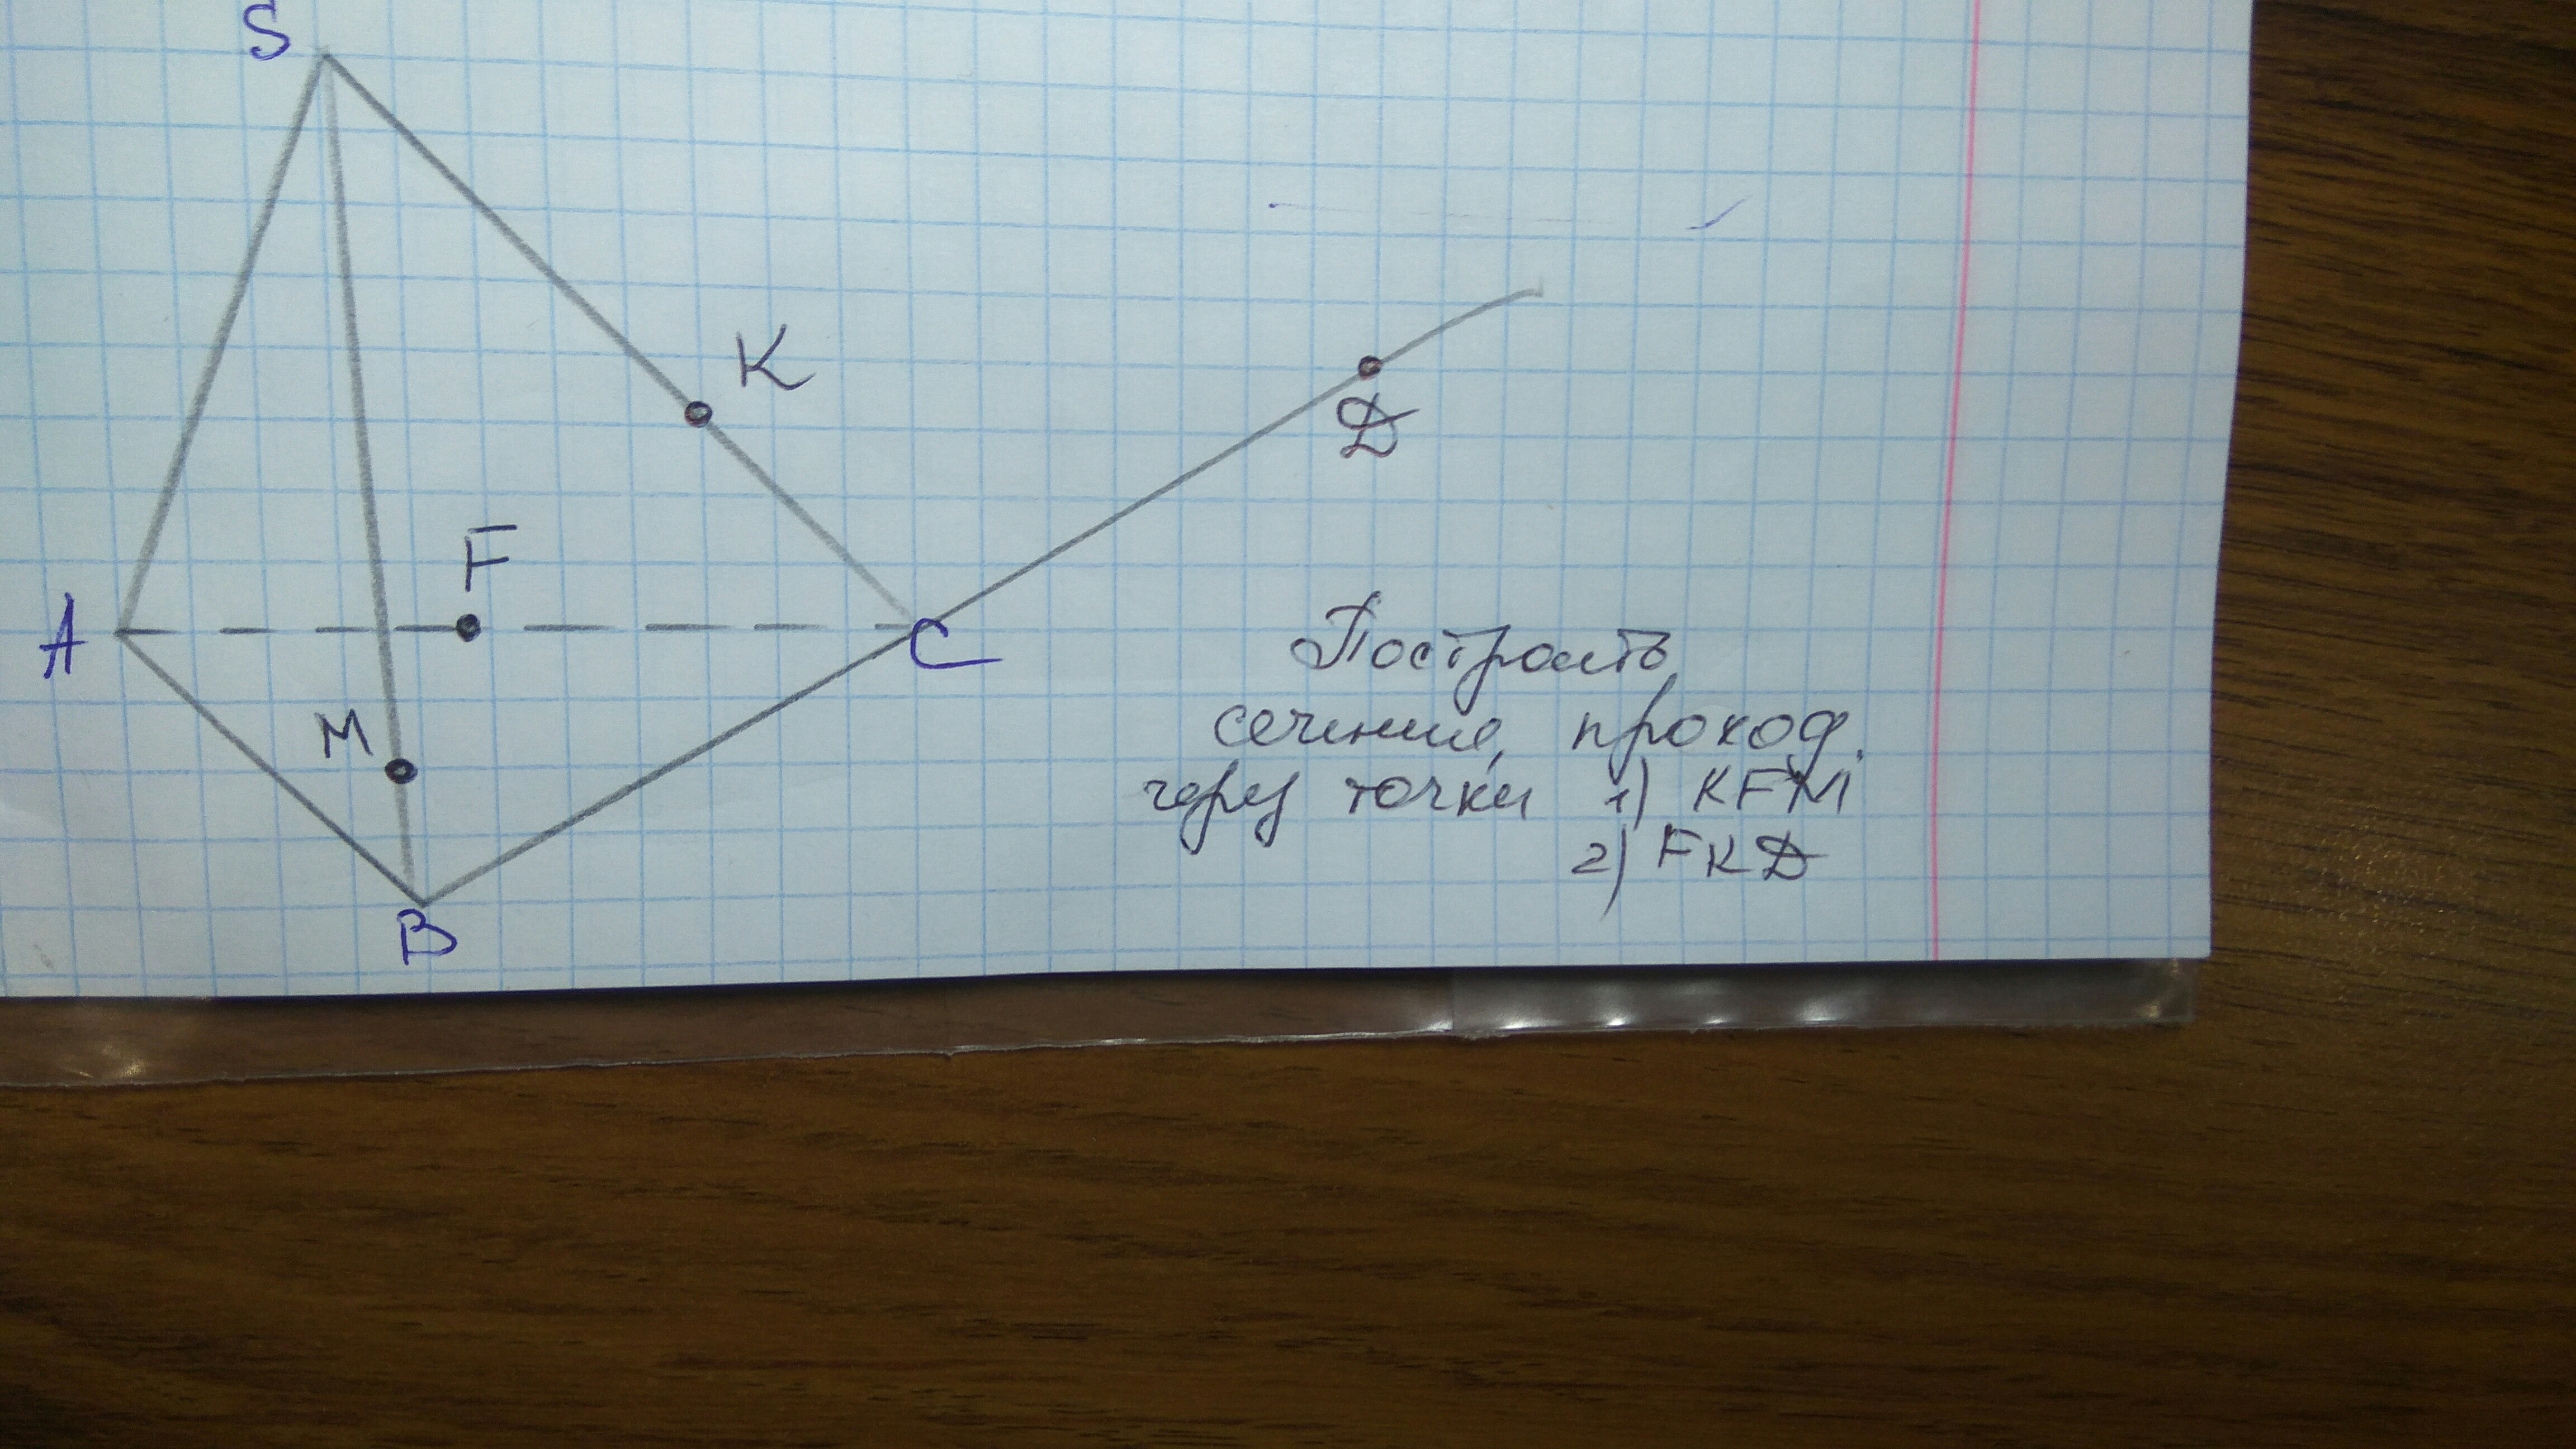 S
K
F
D
A
C
M
B
Построить
сечение, проход.
через точки 1) KFM
2) FKD